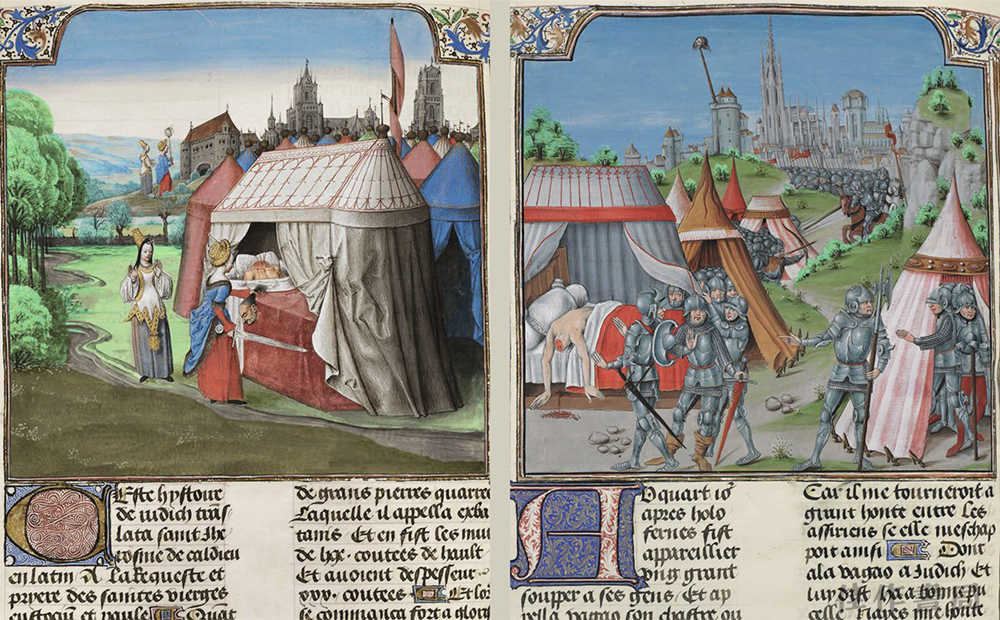 Ceste hystoire
de iudich trās
lata saint Jhe
rosme de caldieu
en latin A La Requeste et
pryere des saintes vierges
et paule Quāt
de grans pierres quarre
Laquelle il appella exba
tanis Et en fist les mu
de lxx. coutees de hault
Et auoient despesseur
xxx. coutees Et lo
se commanca fort a glori
Au quart io
apres holo
fernes fist
appareillier
ung grant
soupper a ses gens, Et ap
pella vagao son chastre ou
Car il me tourneroit a
grant honte entre les
assiriens se elle meschap
poit ainsi Dont
ala vagao a Judich Et
luy dist ha a bonne pu
celle honte